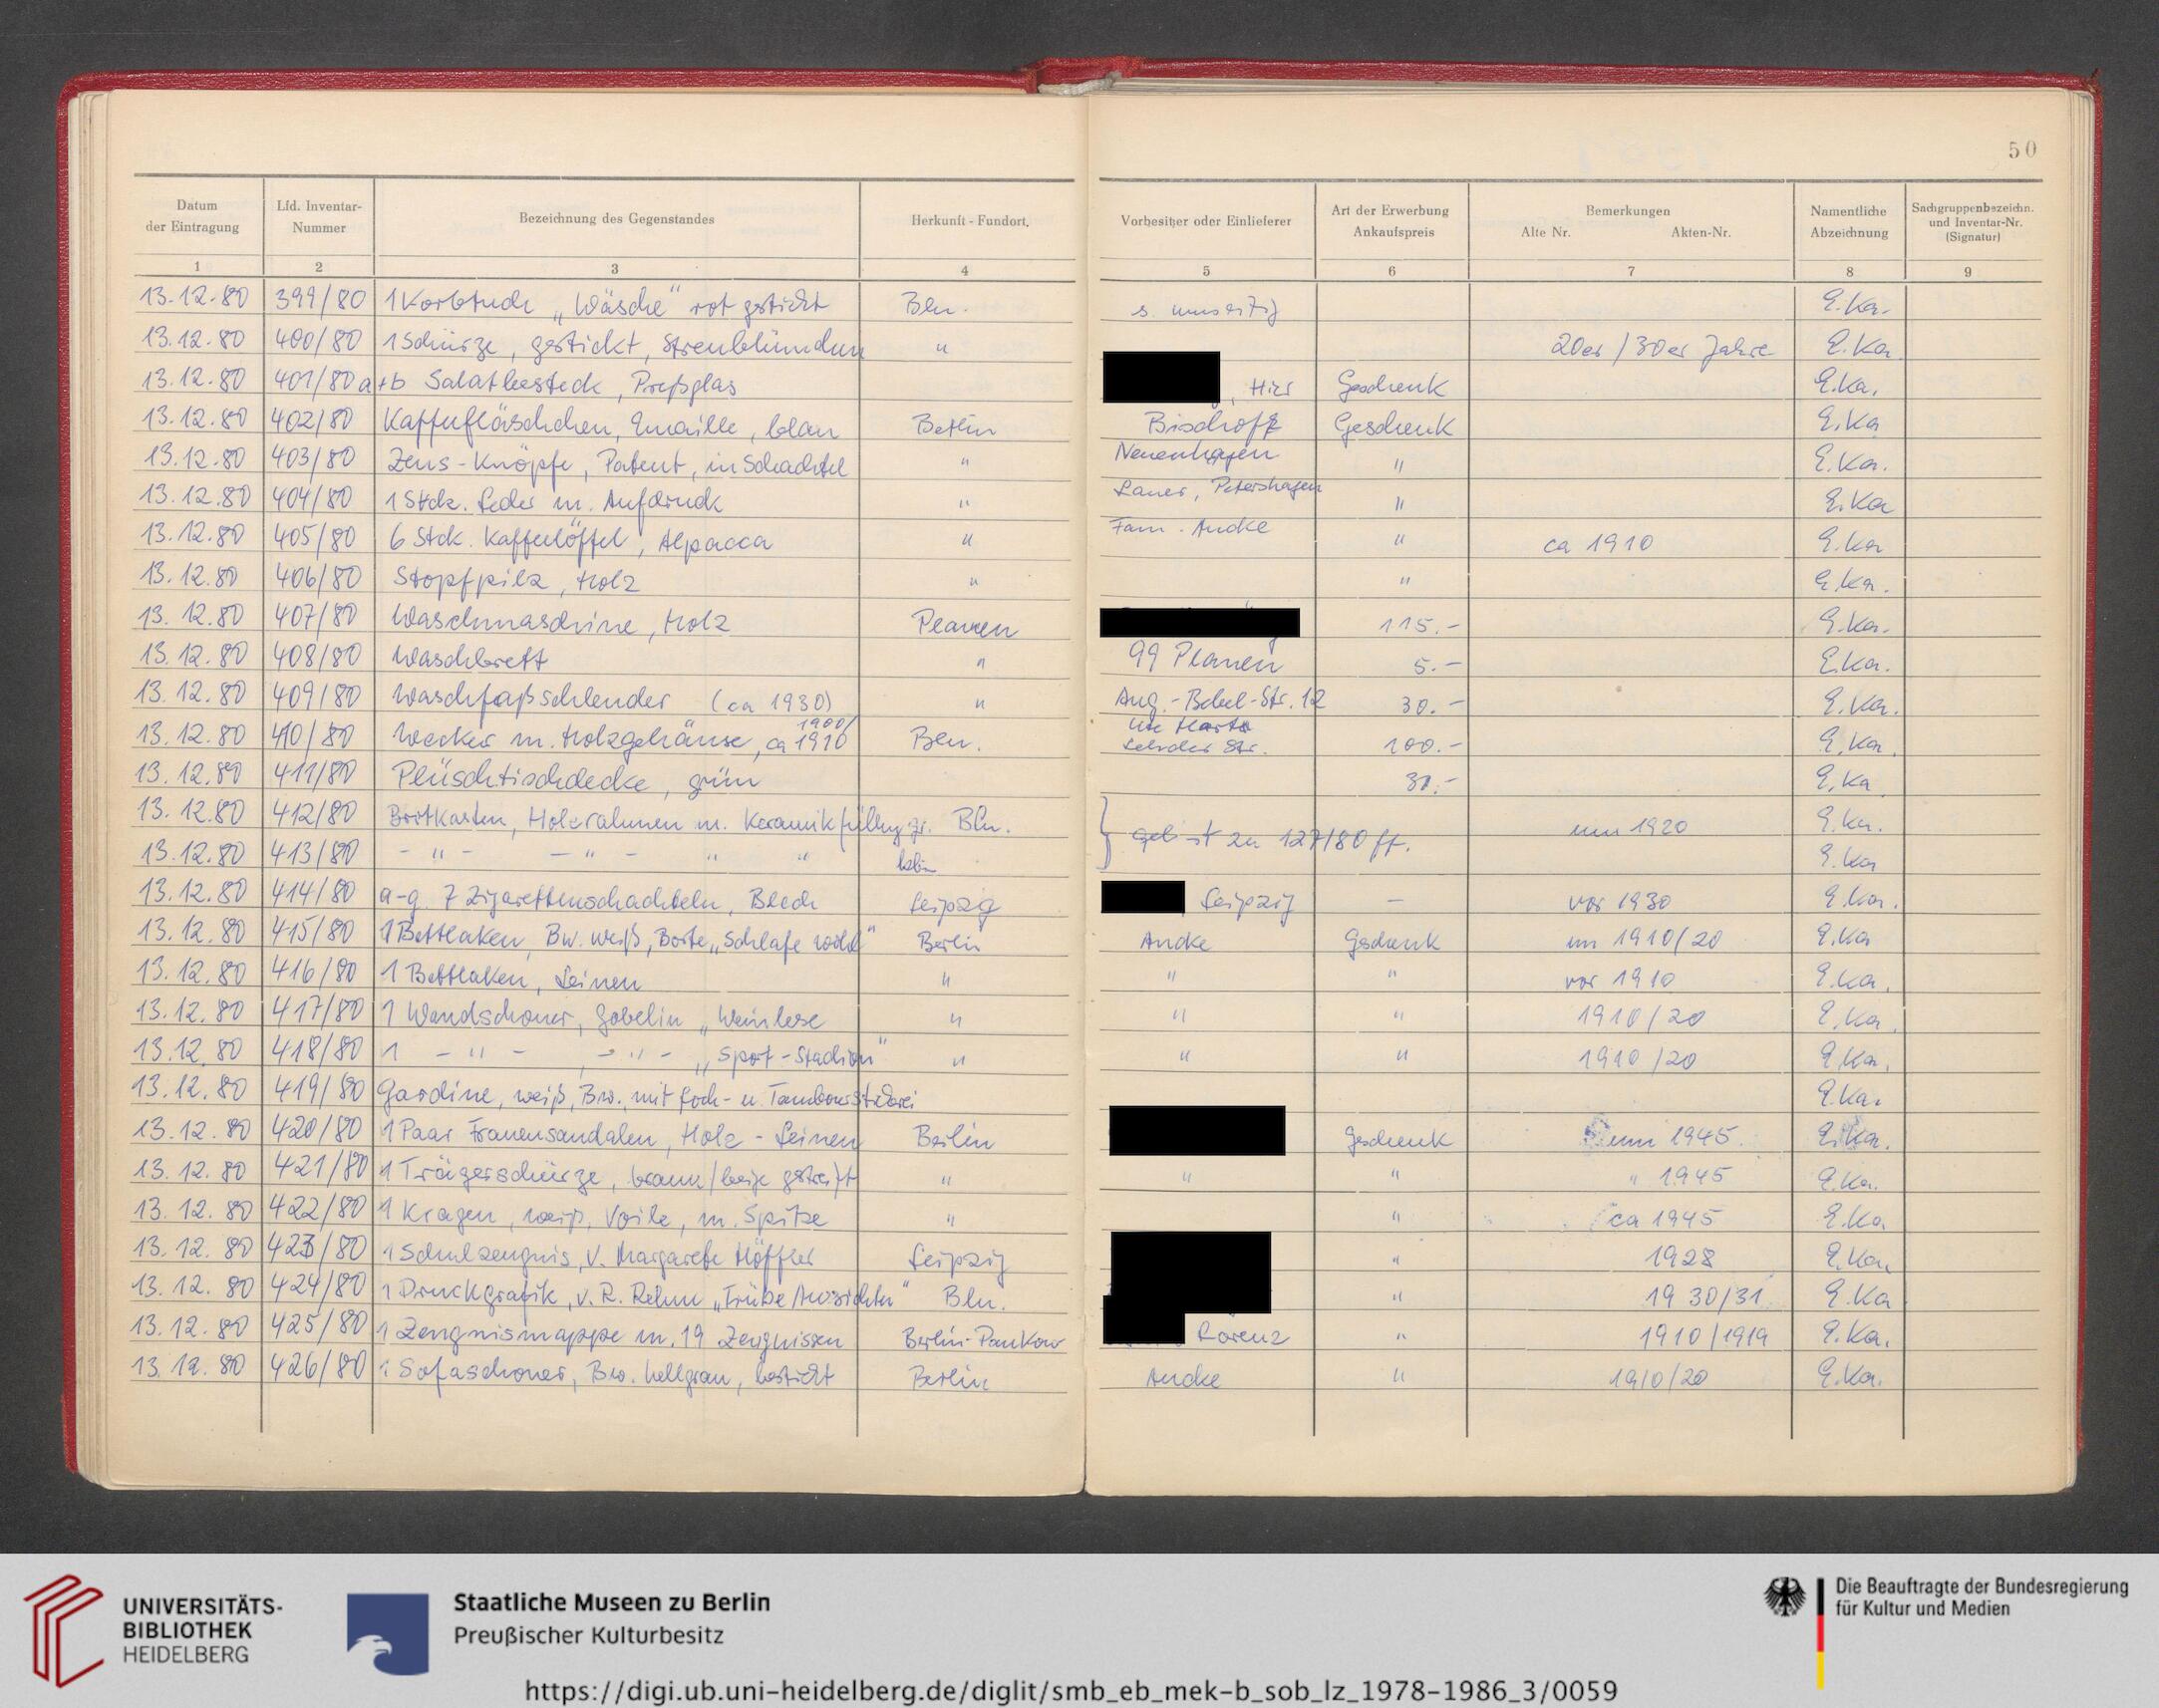 50
Datum der Eintragung | Lfd. Inventar-Nummer | Bezeichnung des Gegenstandes | Herkunft - Fundort. | Vorbesitzer oder Einlieferer | Art der Erwerbung Ankaufspreis | Bemerkungen Alte Nr. Akten-Nr. | Namentliche Abzeichnung | Sachgruppenbezeichn. und Inventar-Nr. (Signatur)
1 2 3 4 5 6 7 8 9
13.12.80 399/80 1 Korbtuch „Wäsche" rot gestickt Bln. s. E.Ka.
13.12.80 400/80 1 Schürze, gestickt, Streublümchen " 20er/30er Jahre E.Ka.
13.12.80 401/80 a+b Salatbesteck, Preßglas , Hier Geschenk E.Ka.
13.12.80 402/80 Kaffeefläschchen, Emaille, blau Berlin Bischoff Geschenk E.Ka
13.12.80 403/80 Zeus-Knöpfe, Patent, in Schachtel " Neuenhagen " E.Ka.
13.12.80 404/80 1 Stck. Leder m. Aufdruck " Lauer, Petershagen " E.Ka
13.12.80 405/80 6 Stck. Kaffeelöffel, Alpacca " Fam. Andke " ca 1910 E.Ka
13.12.80 406/80 Stopfpilz, Holz " " E.Ka.
13.12.80 407/80 Waschmaschine, Holz Plauen 115.- E.Ka.
13.12.80 408/80 Waschbrett " 99 Plauen 5.- E.Ka.
13.12.80 409/80 Waschfaßschleuder (ca 1930) " Aug.-Bebel-Str. 12 30.- E.Ka.
13.12.80 410/80 Wecker m. Holzgehäuse, ca 1900/1910 Bln. Str. 100.- E.Ka.
13.12.80 411/80 Plüschtischdecke, grün 30.- E.Ka
13.12.80 412/80 Brotkasten, Holzrahmen m. Keramikfüllung gr. Bln. gehört zu 127/80 ff. um 1920 E.Ka.
13.12.80 413/80 - " - - " - " " klein E.Ka
13.12.80 414/80 a-g 7 Zigarettenschachteln, Blech Leipzig Leipzig - vor 1930 E.Ka.
13.12.80 415/80 1 Bettlaken, Bw. weiß, Borte „Schlafe wohl" Berlin Andke Geschenk um 1910/20 E.Ka
13.12.80 416/80 1 Bettlaken, Leinen " " " vor 1910 E.Ka.
13.12.80 417/80 1 Wandschoner, Gobelin „Weinlese " " " 1910/20 E.Ka.
13.12.80 418/80 1 - " - - " - „Sport-Stadion" " " " 1910/20 E.Ka.
13.12.80 419/80 Gardine, weiß, Bw., mit Loch- u. Tambourstickerei E.Ka.
13.12.80 420/80 1 Paar Frauensandalen, Holz - Leinen Berlin Geschenk um 1945. E.Ka.
13.12.80 421/80 1 Trägerschürze, braun/beige gestreift " " " " 1945 E.Ka.
13.12.80 422/80 1 Kragen, weiß, Voile, m. Spitze " " ca 1945 E.Ka.
13.12.80 423/80 1 Schulzeugnis, v. Margarete Höffler Leipzig " 1928 E.Ka.
13.12.80 424/80 1 Druckgrafik, v. R. Rehm „Trübe Aussichten" Bln. " 1930/31 E.Ka
13.12.80 425/80 1 Zeugnismappe m. 19 Zeugnissen Berlin-Pankow Lorenz " 1910/1919 E.Ka.
13.12.80 426/80 1 Sofaschoner, Bw. hellgrau, bestickt Berlin Andke " 1910/20 E.Ka.
UNIVERSITÄTS-
BIBLIOTHEK
HEIDELBERG
Staatliche Museen zu Berlin
Preußischer Kulturbesitz
Die Beauftragte der Bundesregierung
für Kultur und Medien
https://digi.ub.uni-heidelberg.de/diglit/smb_eb_mek-b_sob_lz_1978-1986_3/0059